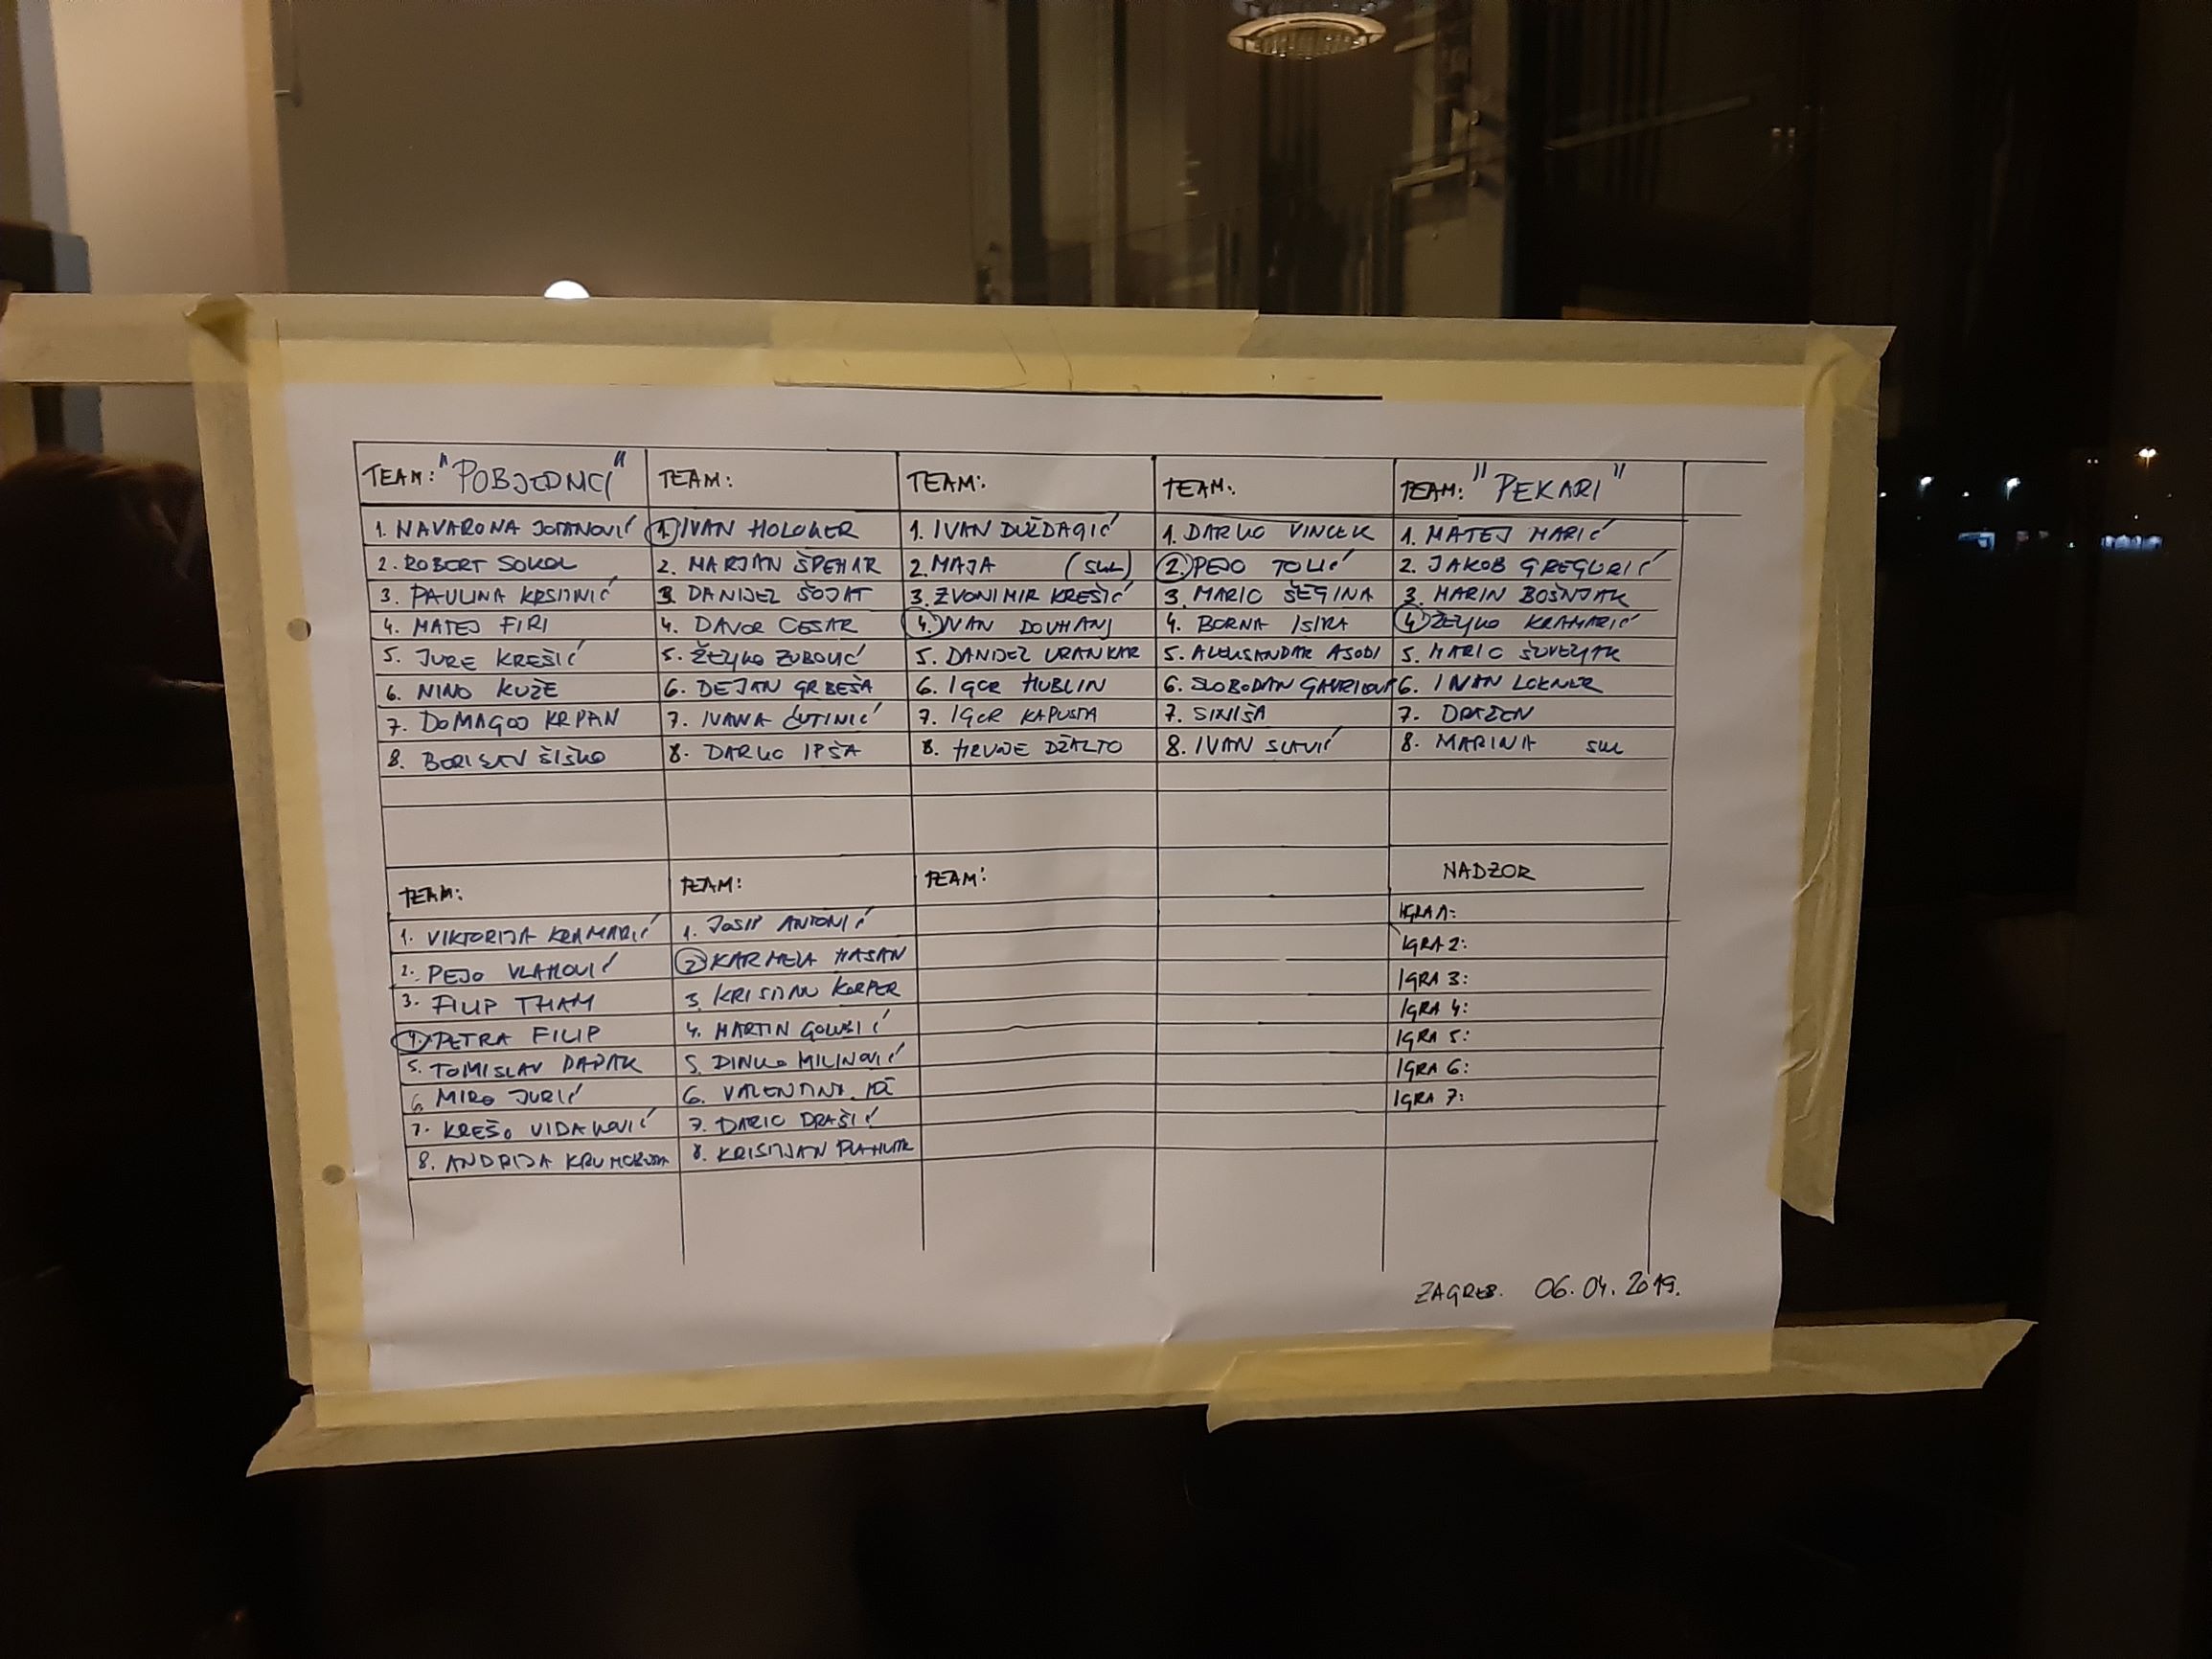 TEAM: "POBJEDNICI"
1. NAVARONA JOVANOVIĆ
2. ROBERT SOKOL
3. PAULINA KRSTINIĆ
4. MATEJ FIRI
5. JURE KREŠIĆ
6. NINO KUZE
7. DOMAGOJ KRPAN
8. BORISLAV ŠIŠKO
TEAM:
1. IVAN HOLOKER
2. MARJAN ŠPEHAR
3. DANIJEL ŠOJAT
4. DAVOR CESAR
5. ŽELJKO ZUBOVIĆ
6. DEJAN GRBEŠA
7. IVANA ĆUTINIĆ
8. DARKO IPŠA
TEAM:
1. IVAN
2. MAJA
3. ZVONIMIR KREŠIĆ
4. IVAN DOVHANJ
5. DANIJEL VRANKAR
6. IGOR HUBLIN
7. IGOR KAPUSTA
8. HRVOJE DŽALTO
TEAM:
1. DARKO VINCEK
2. PEJO TOLIĆ
3. MARIO ŠEGINA
4. BORNA ISIRA
5. ALEKSANDAR ASODI
6. SLOBODAN
7. SINIŠA
8. IVAN SLAVIĆ
TEAM: "PEKARI"
1. MATEJ MARIĆ
2. JAKOB GREGURIĆ
3. MARIN BOŠNJAK
4. ŽELJKO KRAMARIĆ
5. MARIO
6. IVAN LOKNER
7. DRAŽEN
8. MARINA
TEAM:
1. VIKTORIJA KRAMARIĆ
2. PEJO VLAHOVIĆ
3. FILIP THAM
4. PETRA FILIP
5. TOMISLAV PAPAK
6. MIRO JURIĆ
7. KREŠO VIDAKOVIĆ
8. ANDRIJA
TEAM:
1. JOSIP ANTONIĆ
2. KARMELA HASAN
3. KRISTIJAN KORPER
4. MARTIN GOLUBIĆ
5. DINKO MILINOVIĆ
6. VALENTINA
7. DARIO DRAŠIĆ
8. KRISTIJAN PLAHUTAR
TEAM:
NADZOR
IGRA 1:
IGRA 2:
IGRA 3:
IGRA 4:
IGRA 5:
IGRA 6:
IGRA 7:
ZAGREB. 06.04.2019.